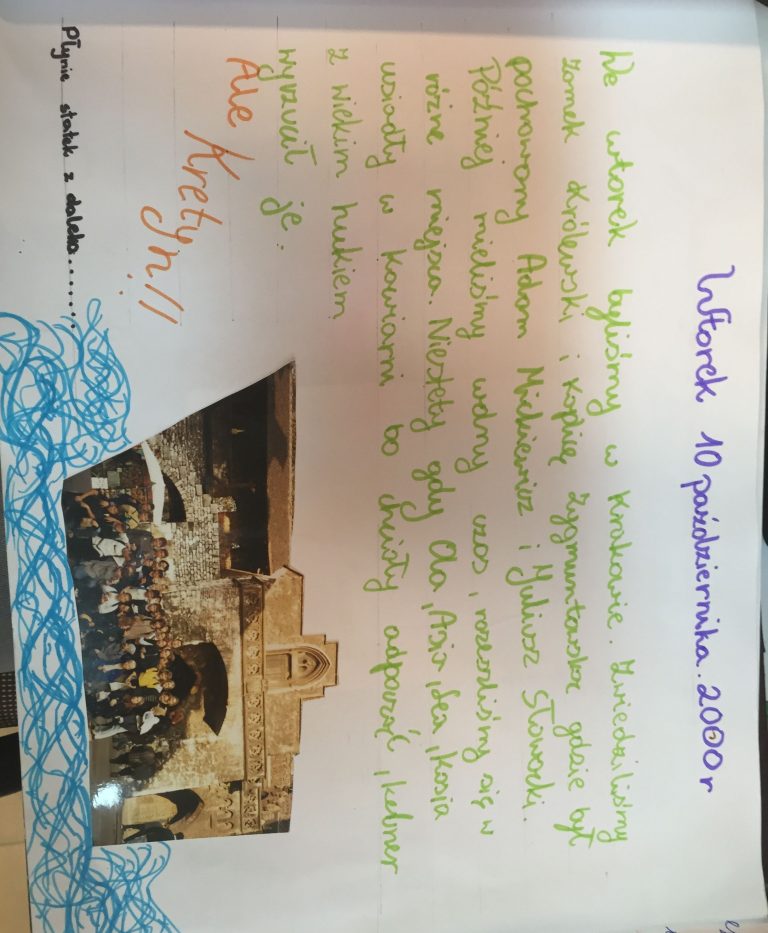 Wtorek 10 października. 2000 r
We wtorek byliśmy w Krakowie. Zwiedziliśmy
zamek Królewski i kopię Zygmuntowską gdzie był
pochowany Adam Mickiewicz i Juliusz Słowacki.
Później mieliśmy wolny czas, rozeszliśmy się w
różne miejsca. Niestety gdy Ola, Asia, Kasia
usiadły w kawiarni bo chciały odpocząć, kelner
z wiekim hukiem
wyrzucił je.
Ale Kretyn!!
Płynie statek z daleka.......